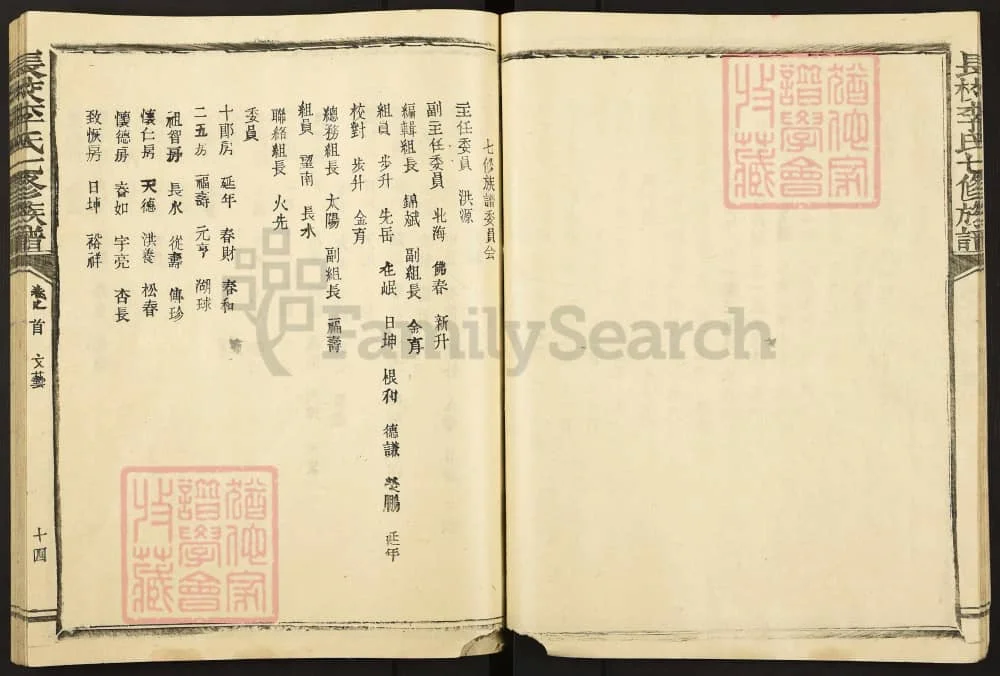 長校李氏七修族譜
七修族譜委員会
主任委員 洪源
副主任委員 北海 佛春 新升
編輯組長 錦斌 副組長 金育
組員 步升 先岳 在岷 日坤 根和 德謙 楚鵬 延年
校對 步升 金育
總務組長 太陽 副組長 福壽
組員 望南 長水
聯絡組長 火先
委員
十郎房 延年 春財 春和
二五房 福壽 元亨 湖球
祖智房 長水 從壽 傳珍
懷仁房 天德 洪養 松春
懷德房 春如 宇亮 杏長
致恢房 日坤 裕祥
長校李氏七修族譜
卷之首 文藝
十四
猶他家譜學會特藏
猶他家譜學會特藏
FamilySearch